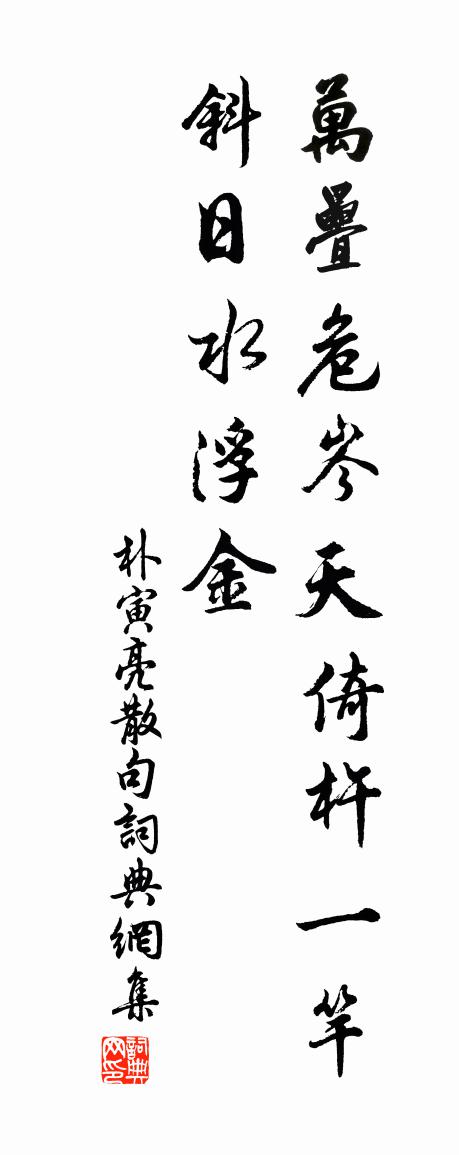 萬疊危岑天倚杵一竿
斜日水浮金
朴寅亮散句詞典網集
詞典
网印